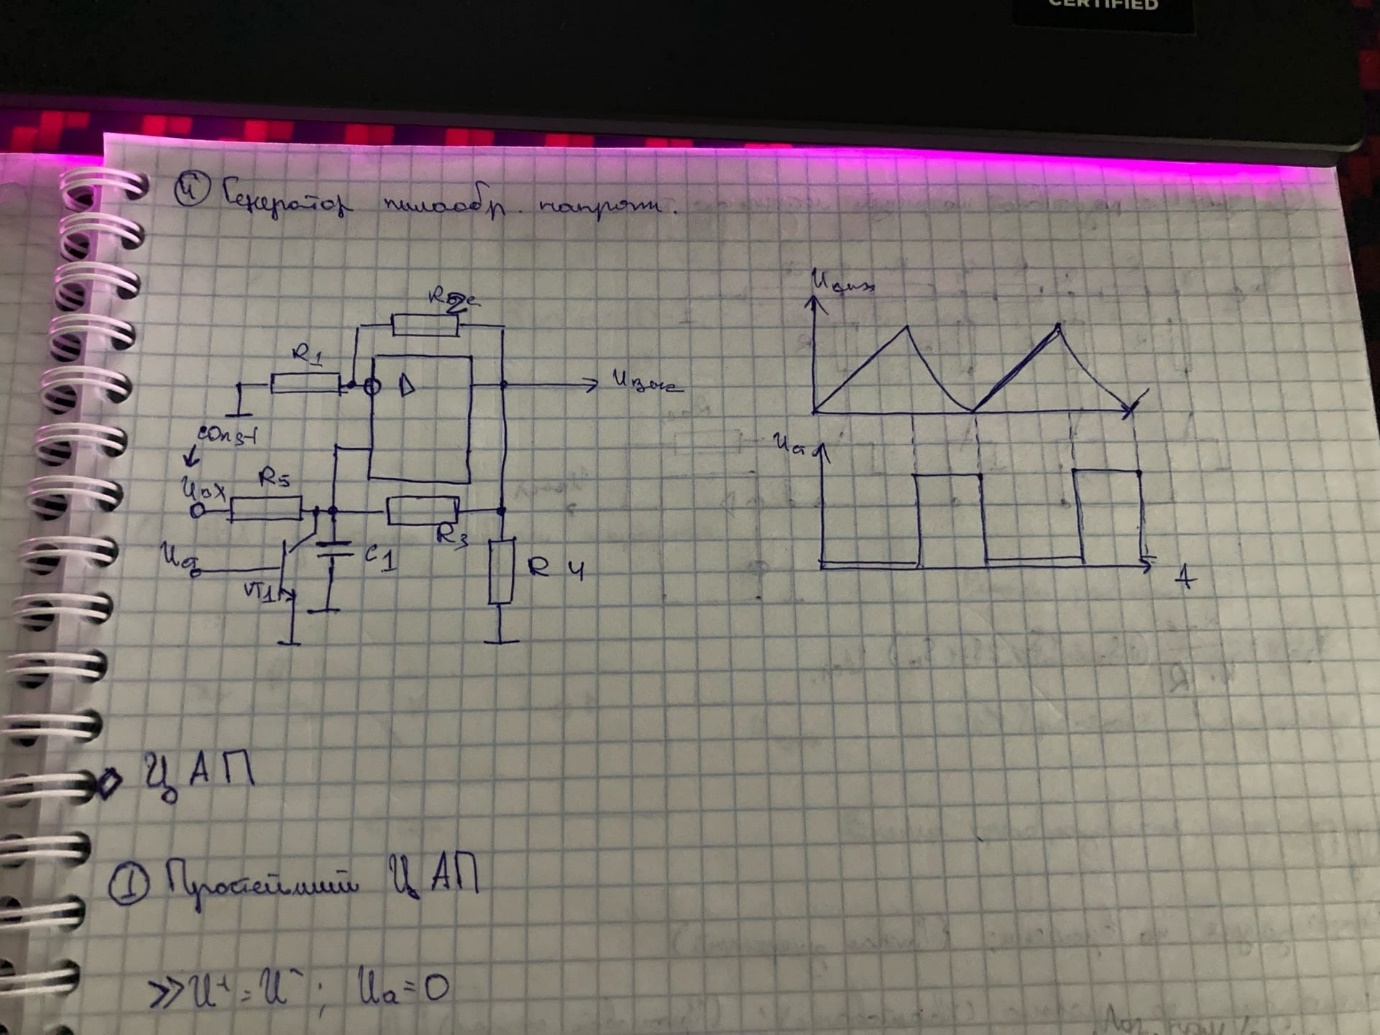 CERTIFIED
④ Генератор пилообр. напряж.
R2
R1
D
Uвых
const
Uвх
R5
R3
Uа
VT1
C1
R4
Uвых
Uа
t
ЦАП
① Простейший ЦАП
>> U⁺ = U⁻; Uа = 0